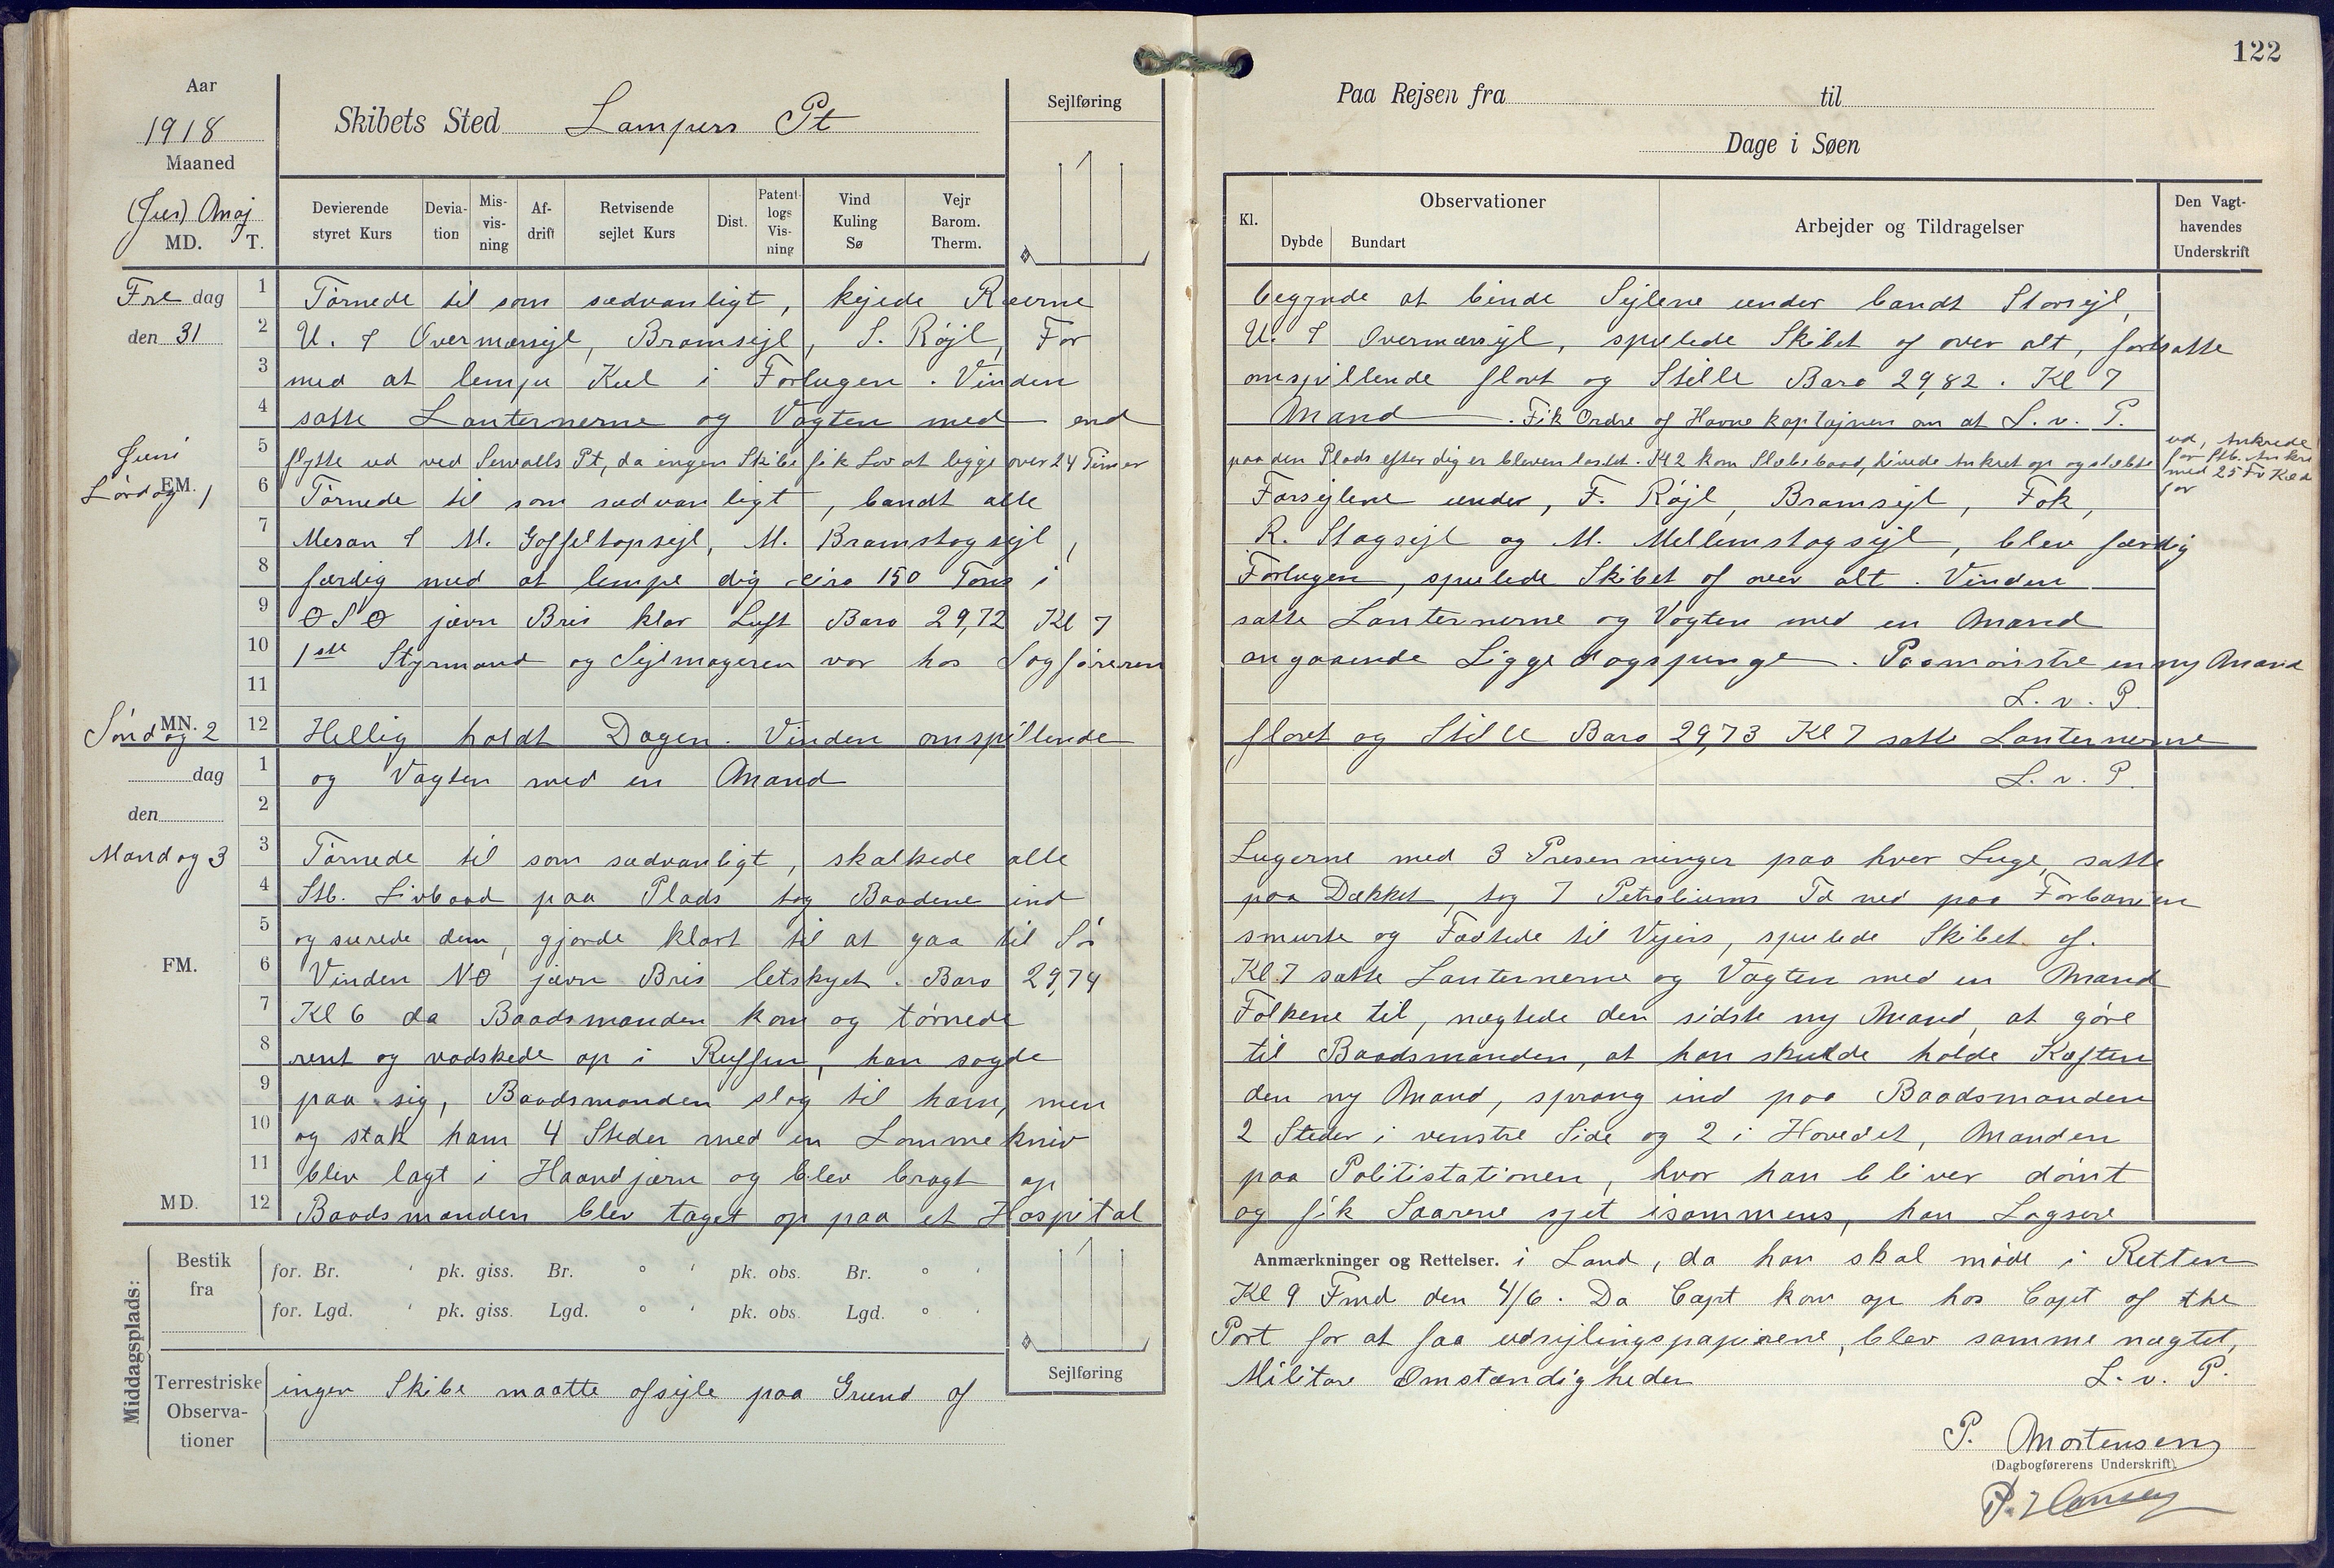 122
Aar
1918
Maaned
(Juni) Maj
MD. T.
Skibets Sted Lampers Pt
Sejlføring
Devierende styret Kurs
Devia-tion
Mis-vis-ning
Af-drift
Retvisende sejlet Kurs
Dist.
Patent-logs Vis-ning
Vind Kuling Sø
Vejr Barom. Therm.
Paa Rejsen fra til
Dage i Søen
Kl.
Observationer
Dybde Bundart
Arbejder og Tildragelser
Den Vagt-havendes Underskrift
Fre dag
den 31
1 Tørnede til som sædvanligt, kejede Ræerne
begynde at binde Sejlene under bandt Storsejl,
2 U. & Overmærssejl, Bramsejl, S. Røjl, For
U. & Overmærssejl, spulede Skibet af over alt, fortsatte
3 med at lempe Kul i Forlugen. Vinden
omspillende flovt og Stille Baro 29,82. Kl 7
4 satte Lanternerne og Vagten med end
Mand. Fik Ordre af Havnekaptajnen om at L. v. P.
Juni
5 flytte ud ved Sewalls Pt, da ingen Skibe fik Lov at ligge over 24 Timer
paa den Plads efter dig er bleven losset. Kl 2 kom Slæbebaad, hivede Ankret op og slæbte
ud, Ankrede
for Stb. Anker
med 25 Fv Kæde
for
EM.
Lørdag 1
6 Tørnede til som sædvanligt, bandt alle
Forsejlene under, F. Røjl, Bramsejl, Fok,
7 Mesan & M. Gaffeltopsejl, M. Bramstagsejl,
R. Stagsejl og M. Mellemstagsejl, blev færdig
8 færdig med at lempe dig cira 150 Tons i
Forlugen, spulede Skibet af over alt. Vinden
9 OSO jævn Bris klar Luft Baro 29,72 Kl 7
satte Lanternerne og Vagten med en Mand
10 1ste Styrmand og Sejlmageren var hos Sagføreren
angaaende Liggedagspenge. Paamønstre en ny Mand
11
L. v. P.
MN.
Søndag 2
12 Hellig holdt Dagen. Vinden omspillende
flovt og Stille Baro 29,73 Kl 7 satte Lanternerne
dag
1 og Vagten med en Mand
L. v. P.
den
2
Mandag 3
3 Tørnede til som sædvanligt, skalkede alle
Lugerne med 3 Presenninger paa hver Luge, satte
4 Stb. Livbaad paa Plads tog Baadene ind
paa Dækket, tog 7 Petroliums Td ned paa Forbanien
5 og surede dem, gjorde klart til at gaa til Sø
smurte og Fadtede til Vejers, spulede Skibet af.
FM.
6 Vinden NO jævn Bris letskyet. Baro 29,74
Kl. 7 satte Lanternerne og Vagten med en Mand
7 Kl 6 da Baadsmanden kom og tørnede
Folkene til, nægtede den sidste ny Mand, at gøre
8 rent og vadskede op i Ruffen, han sagde
til Baadsmanden, at han skulde holde Kæften
9 paa sig, Baadsmanden slog til ham, men
den ny Mand, sprang ind paa Baadsmanden
10 og stak ham 4 Steder med en Lommekniv
2 Steder i venstre Side og 2 i Hovedet, Manden
11 blev lagt i Haandjærn og blev bragt op
paa Politistationen, hvor han bliver dømt
MD.
12 Baadsmanden blev taget op paa et Hospital
og fik Saarene sjet isammens, han Logsere
Middagsplads:
Bestik fra
for. Br. ' pk. giss. Br. ° ' pk. obs. Br. ° '
for. Lgd. ' pk. giss. Lgd. ° ' pk. obs. Lgd. ° '
Sejlføring
Anmærkninger og Rettelser. i Land, da han skal møde i Retten
Kl 9 Fmd den 4/6. Da Capt kom op hos Capt of the
Port for at faa udsejlingspapirene, blev samme nægtet,
Terrestriske Observa-tioner
ingen Skibe maatte afsejle paa Grund af
Militære Omstændigheder L. v. P.
P. Mortensen
(Dagbogførerens Underskrift).
P. Hansen